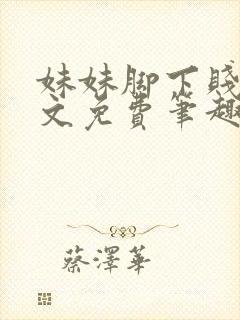 妹妹脚下贱
文免费笔趣
蔡泽华